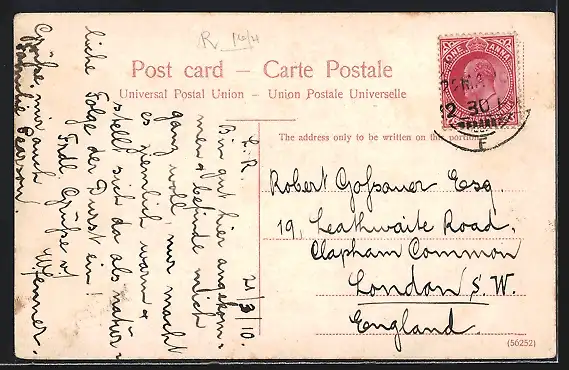 R 16/4
Post card – Carte Postale
Universal Postal Union – Union Postale Universelle
The address only to be written on this portion.
ONE ANNA
2 30
E
L. R.
21/3 10.
Bin gut hier angekom-
men & befinde mich
ganz woll, nur macht
es ziemlich warm &
stellt sich da als natür-
liche Folge der Durst ein!
Frdl. Grüsse v/
W. Jenner.
Grüsse mir auch
Familie Pearson.
Robert Gossauer Esq
19, Leathwaite Road,
Clapham Common
London S.W.
England.
(56252)